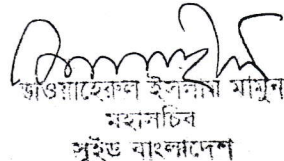 জাওয়াহেরুল ইসলাম মামুন
মহাসচিব
সুইড বাংলাদেশ